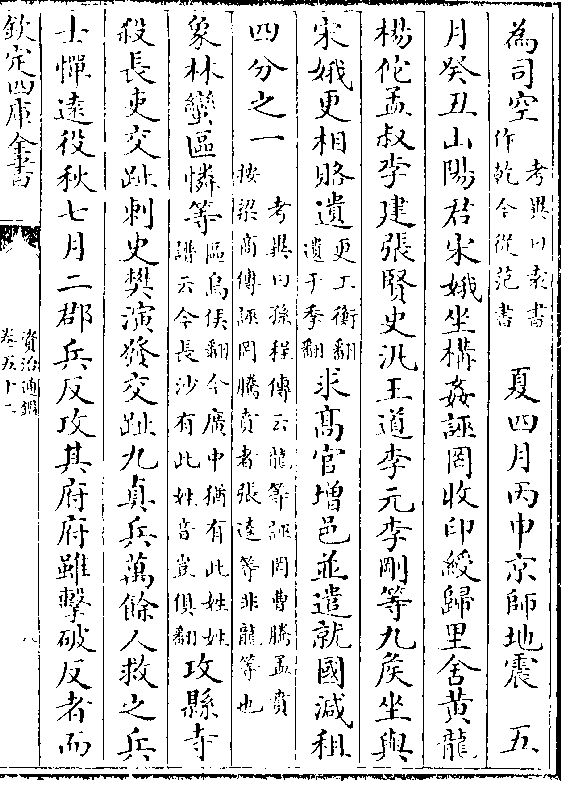 為司空考異曰袁書作乾今從范書　夏四月丙申京師地震　五
月癸丑山陽君宋娥坐構姦誣罔收印綬歸里舍黃龍
楊佗孟叔李建張賢史汎王道李元李剛等九侯坐與
宋娥更相賂遺更工衡翻遺于季翻求高官增邑並遣就國減租
四分之一考異曰孫程傳云龍等誣罔曹騰孟賁按梁商傳誣罔騰賁者張逵等非龍等也
象林蠻區憐等區烏侯翻今廣中猶有此姓姓譜云今長沙有此姓音豈俱翻攻縣寺
殺長吏交趾刺史樊演發交趾九真兵萬餘人救之兵
士憚遠役秋七月二郡兵反攻其府府雖擊破反者而
欽定四庫全書
資治通鑑
卷五十二
八